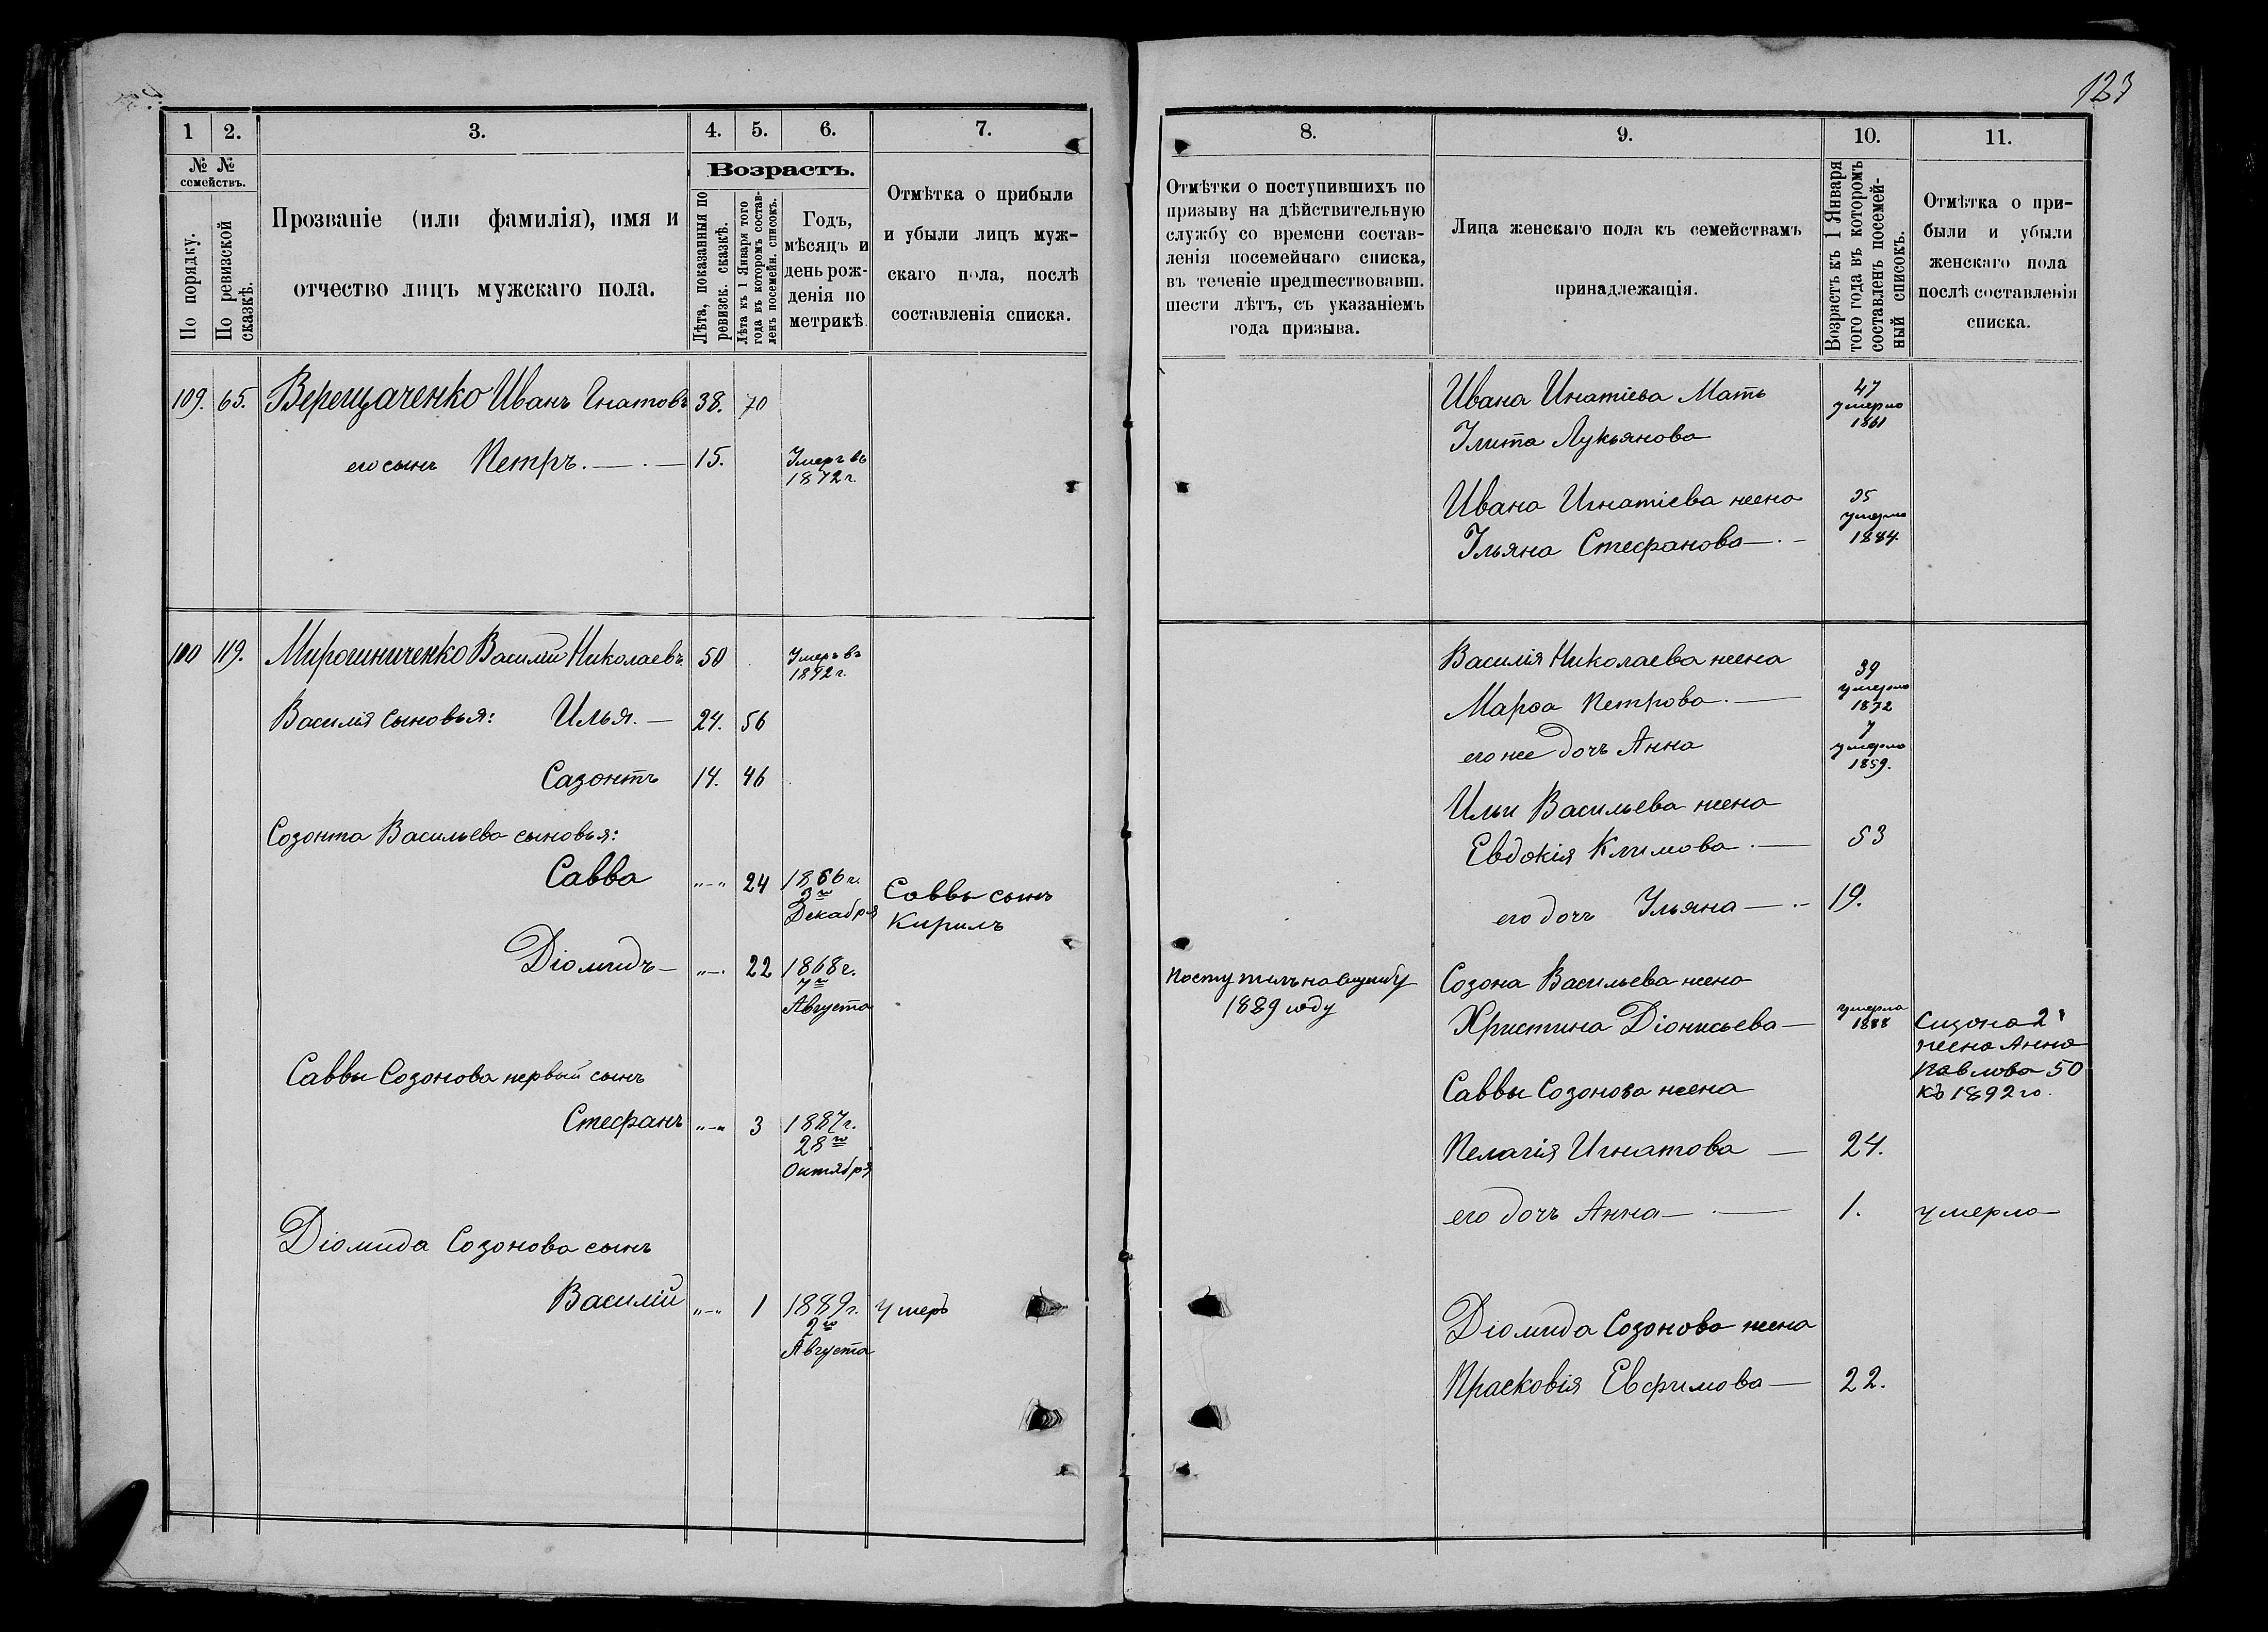 123
1 2. 3. 4. 5. 6. 7.
№ №
семействъ.
По порядку.
По ревизской
сказкѣ.
Прозваніе (или фамилія), имя и
отчество лицъ мужскаго пола.
Возрастъ.
Лѣта, показанныя по
ревизск. сказкѣ.
Лѣта къ 1 Января того
года въ которомъ состав-
ленъ посемейн. списокъ.
Годъ,
мѣсяцъ и
день рож-
денія по
метрикѣ.
Отмѣтка о прибыли
и убыли лицъ муж-
скаго пола, послѣ
составленія списка.
109. 65. Верещаченко Иванъ Игнатовъ 38. 70
его сынъ Петръ. 15. Умеръ въ
1872 г.
110 119. Мирошниченко Василій Николаевъ 50 Умеръ въ
1892 г.
Василія сыновья: Илья. — 24. 56
Сазонтъ 14. 46
Созонта Васильева сыновья:
Савва „—„ 24 1866 г.
3го
Декабря
Саввы сынъ
Кирилъ
Діомидъ — „—. 22 1868 г.
7го
Августа
Саввы Созонова первый сынъ
Стефанъ „—„ 3 1887 г.
28го
Октября
Діомида Созонова сынъ
Василій „—„ 1 1889 г. умеръ
2го
Августа
8. 9. 10. 11.
Отмѣтки о поступившихъ по
призыву на дѣйствительную
службу со времени состав-
ленія посемейнаго списка,
въ теченіе предшествовавш.
шести лѣтъ, съ указаніемъ
года призыва.
Лица женскаго пола къ семействамъ
принадлежащія.
Возрастъ къ 1 Января
того года въ которомъ
составленъ посемей-
ный списокъ.
Отмѣтка о при-
были и убыли
женскаго пола
послѣ составленія
списка.
Ивана Игнатіева Мать 47
умерла
1861
Улита Лукьянова
Ивана Игнатіева жена 35
умерла
1884.
Ульяна Стефанова —. —
Василія Николаева жена
Марѳа Петрова. — 39
умерла
1872
его же дочь Анна 7
умерла
1859.
Ильи Васильева жена
Евдокія Климова. — 53
его дочь Ульяна —. — 19.
Поступилъ на службу
1889 году
Созона Васильева жена
Христина Діонисьева — умерла
1888
Сизона 2я
жена Анна
Павлова 50
къ 1892 го.
Саввы Созонова жена
Пелагія Игнатова — 24.
его дочь Анна — . — 1. умерла
Діомида Созонова жена
Прасковія Евфимова — 22.